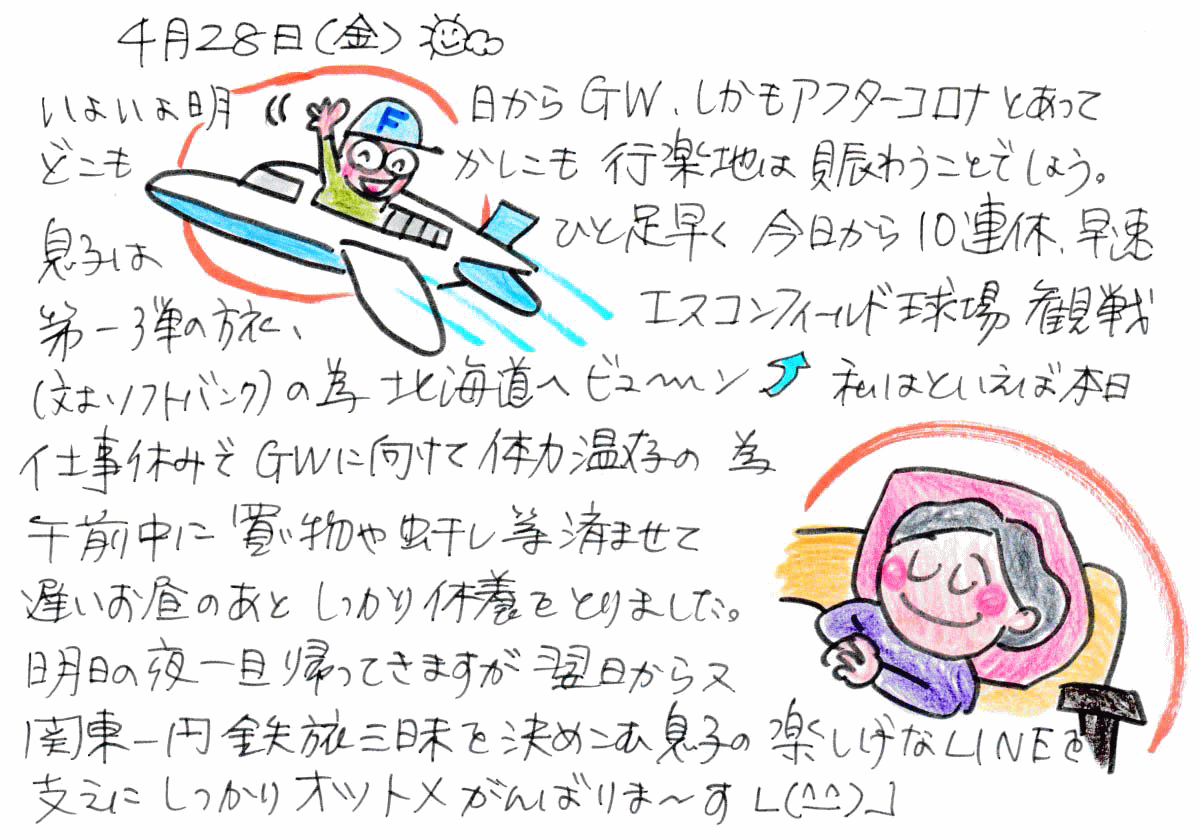 4月28日(金)
いよいよ明日からGW、しかもアフターコロナとあって
どこもかしこも行楽地は賑わうことでしょう。
息子はひと足早く今日から10連休、早速
第一弾の旅に、エスコンフィールド球場観戦
(対ソフトバンク)の為北海道へビュ〜ン 私はといえば本日
仕事休みでGWに向けて体力温存の為
午前中に買い物や虫干し等済ませて
遅いお昼のあとしっかり休養をとりました。
明日の夜一旦帰ってきますが翌日から又
関東一円鉄旅三昧を決めこむ息子の楽しげなLINEを
支えにしっかりオットメがんばりま〜す L(^^)」
F